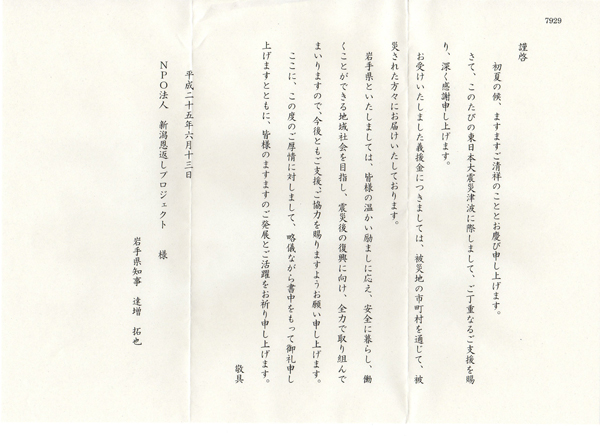 7929
謹啓
初夏の候、ますますご清祥のこととお慶び申し上げます。
さて、このたびの東日本大震災津波に際しまして、ご丁重なるご支援を賜
り、深く感謝申し上げます。
お受けいたしました義援金につきましては、被災地の市町村を通じて、被
災された方々にお届けいたしております。
岩手県といたしましては、皆様の温かい励ましに応え、安全に暮らし、働
くことができる地域社会を目指し、震災後の復興に向け、全力で取り組んで
まいりますので、今後ともご支援、ご協力を賜りますようお願い申し上げます。
ここに、この度のご厚情に対しまして、略儀ながら書中をもって御礼申し
上げますとともに、皆様のますますのご発展とご活躍をお祈り申し上げます。
敬具
平成二十五年六月十三日
NPO法人 新潟恩返しプロジェクト 様
岩手県知事 達増 拓也